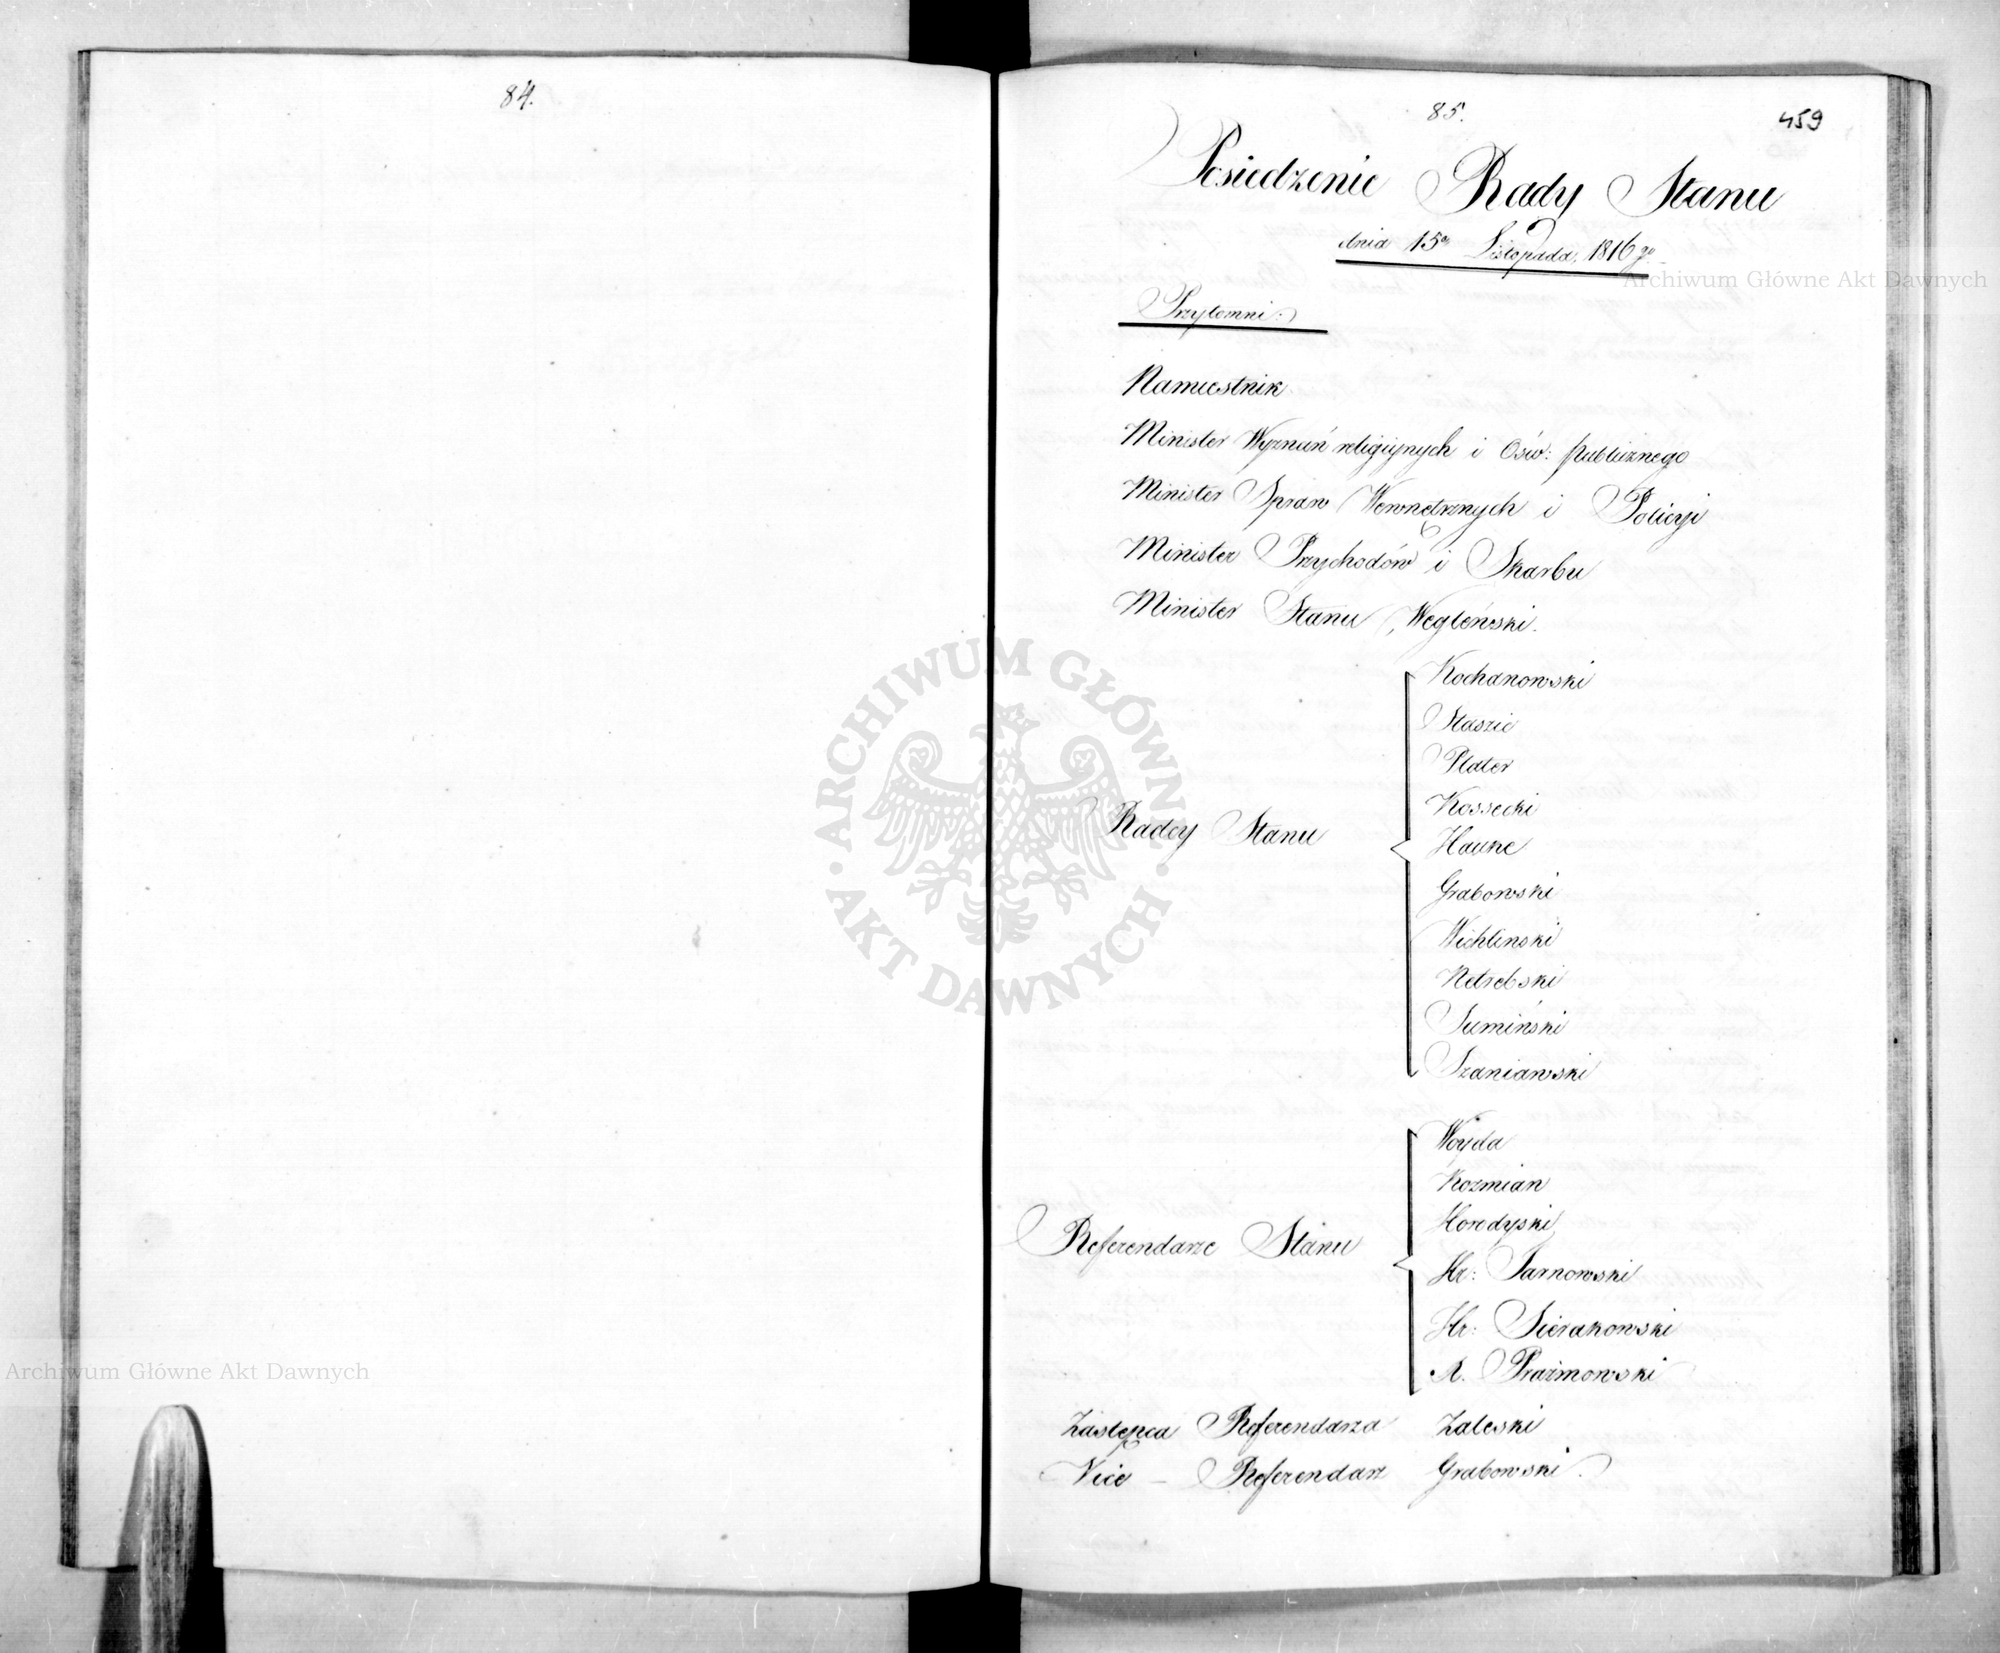 84.
85.
459
Posiedzenie Rady Stanu
dnia 15go Listopada, 1816 go
Przytomni:
Namiestnik
Minister Wyznań religijnych i Ośw: publicznego
Minister Spraw Wewnętrznych i Policyi
Minister Przychodów i Skarbu
Minister Stanu Węgleński.
Radcy Stanu
Kochanowski
Staszic
Plater
Kossecki
Hauke
Grabowski
Wichliński
Netrebski
Sumiński
Szaniawski
Referendarze Stanu
Woyda
Kozmian
Horodyski
Hr: Tarnowski
Hr: Sierakowski
A. Prażmowski
Zastępca Referendarza Zaleski
Vice - Referendarz Grabowski.
Archiwum Główne Akt Dawnych
ARCHIWUM GŁÓWNE · AKT DAWNYCH ·
Archiwum Główne Akt Dawnych